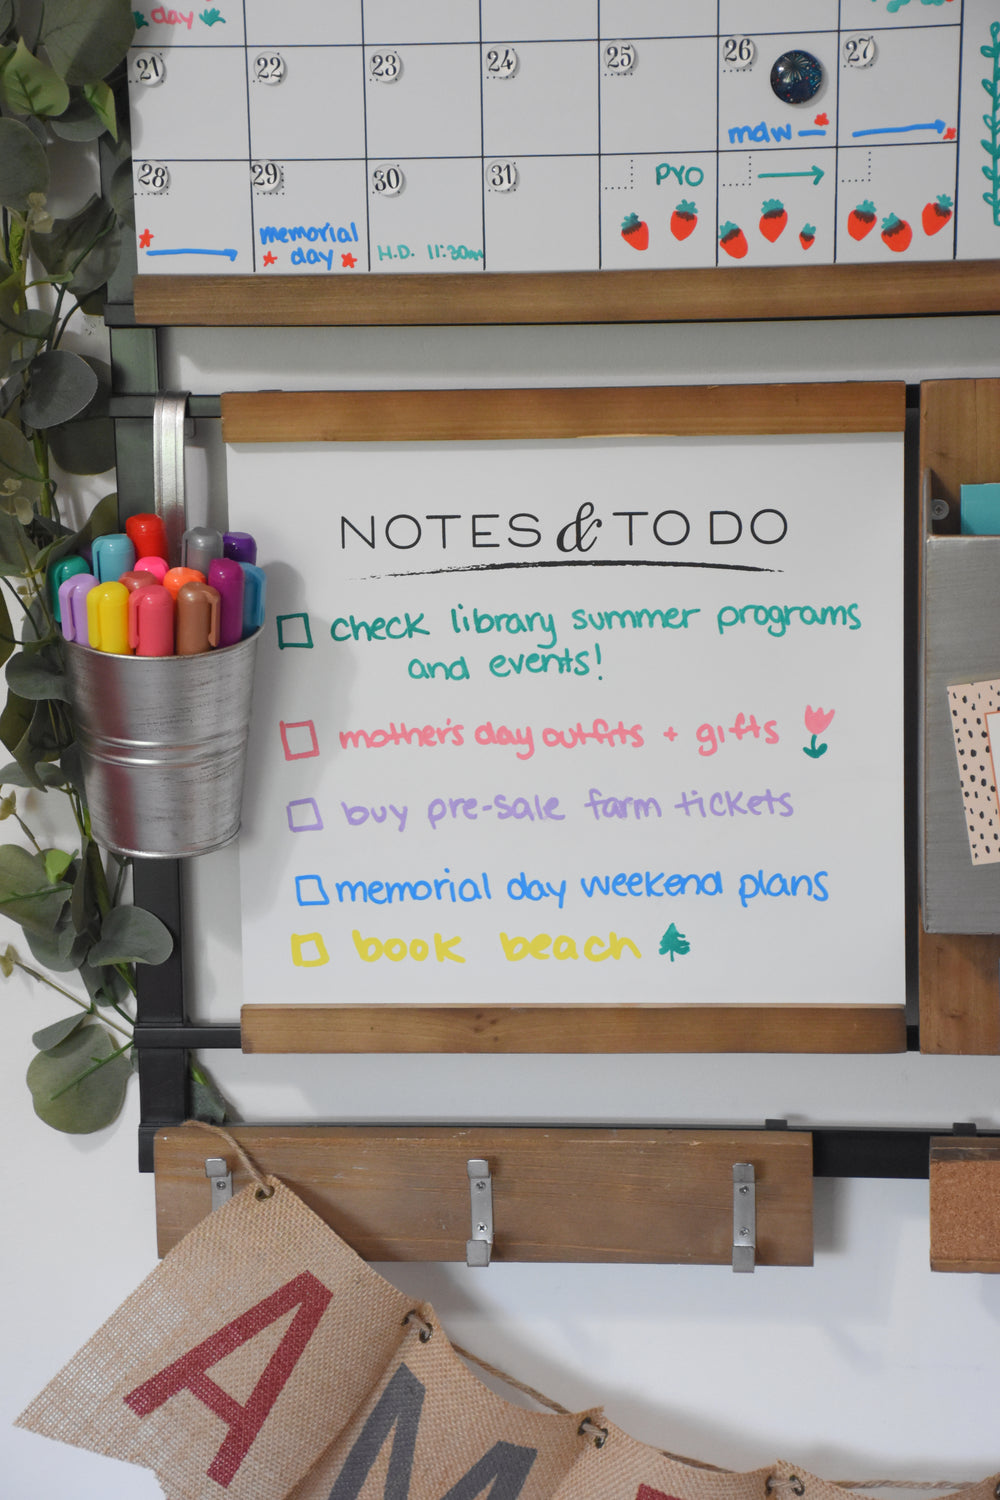 day
21 22 23 24 25 26 27
mdw
28 29 30 31 PYO
memorial
day
H.D. 11:30am
NOTES & TO DO
check library summer programs
and events!
mother's day outfits + gifts
buy pre-sale farm tickets
memorial day weekend plans
book beach
A M